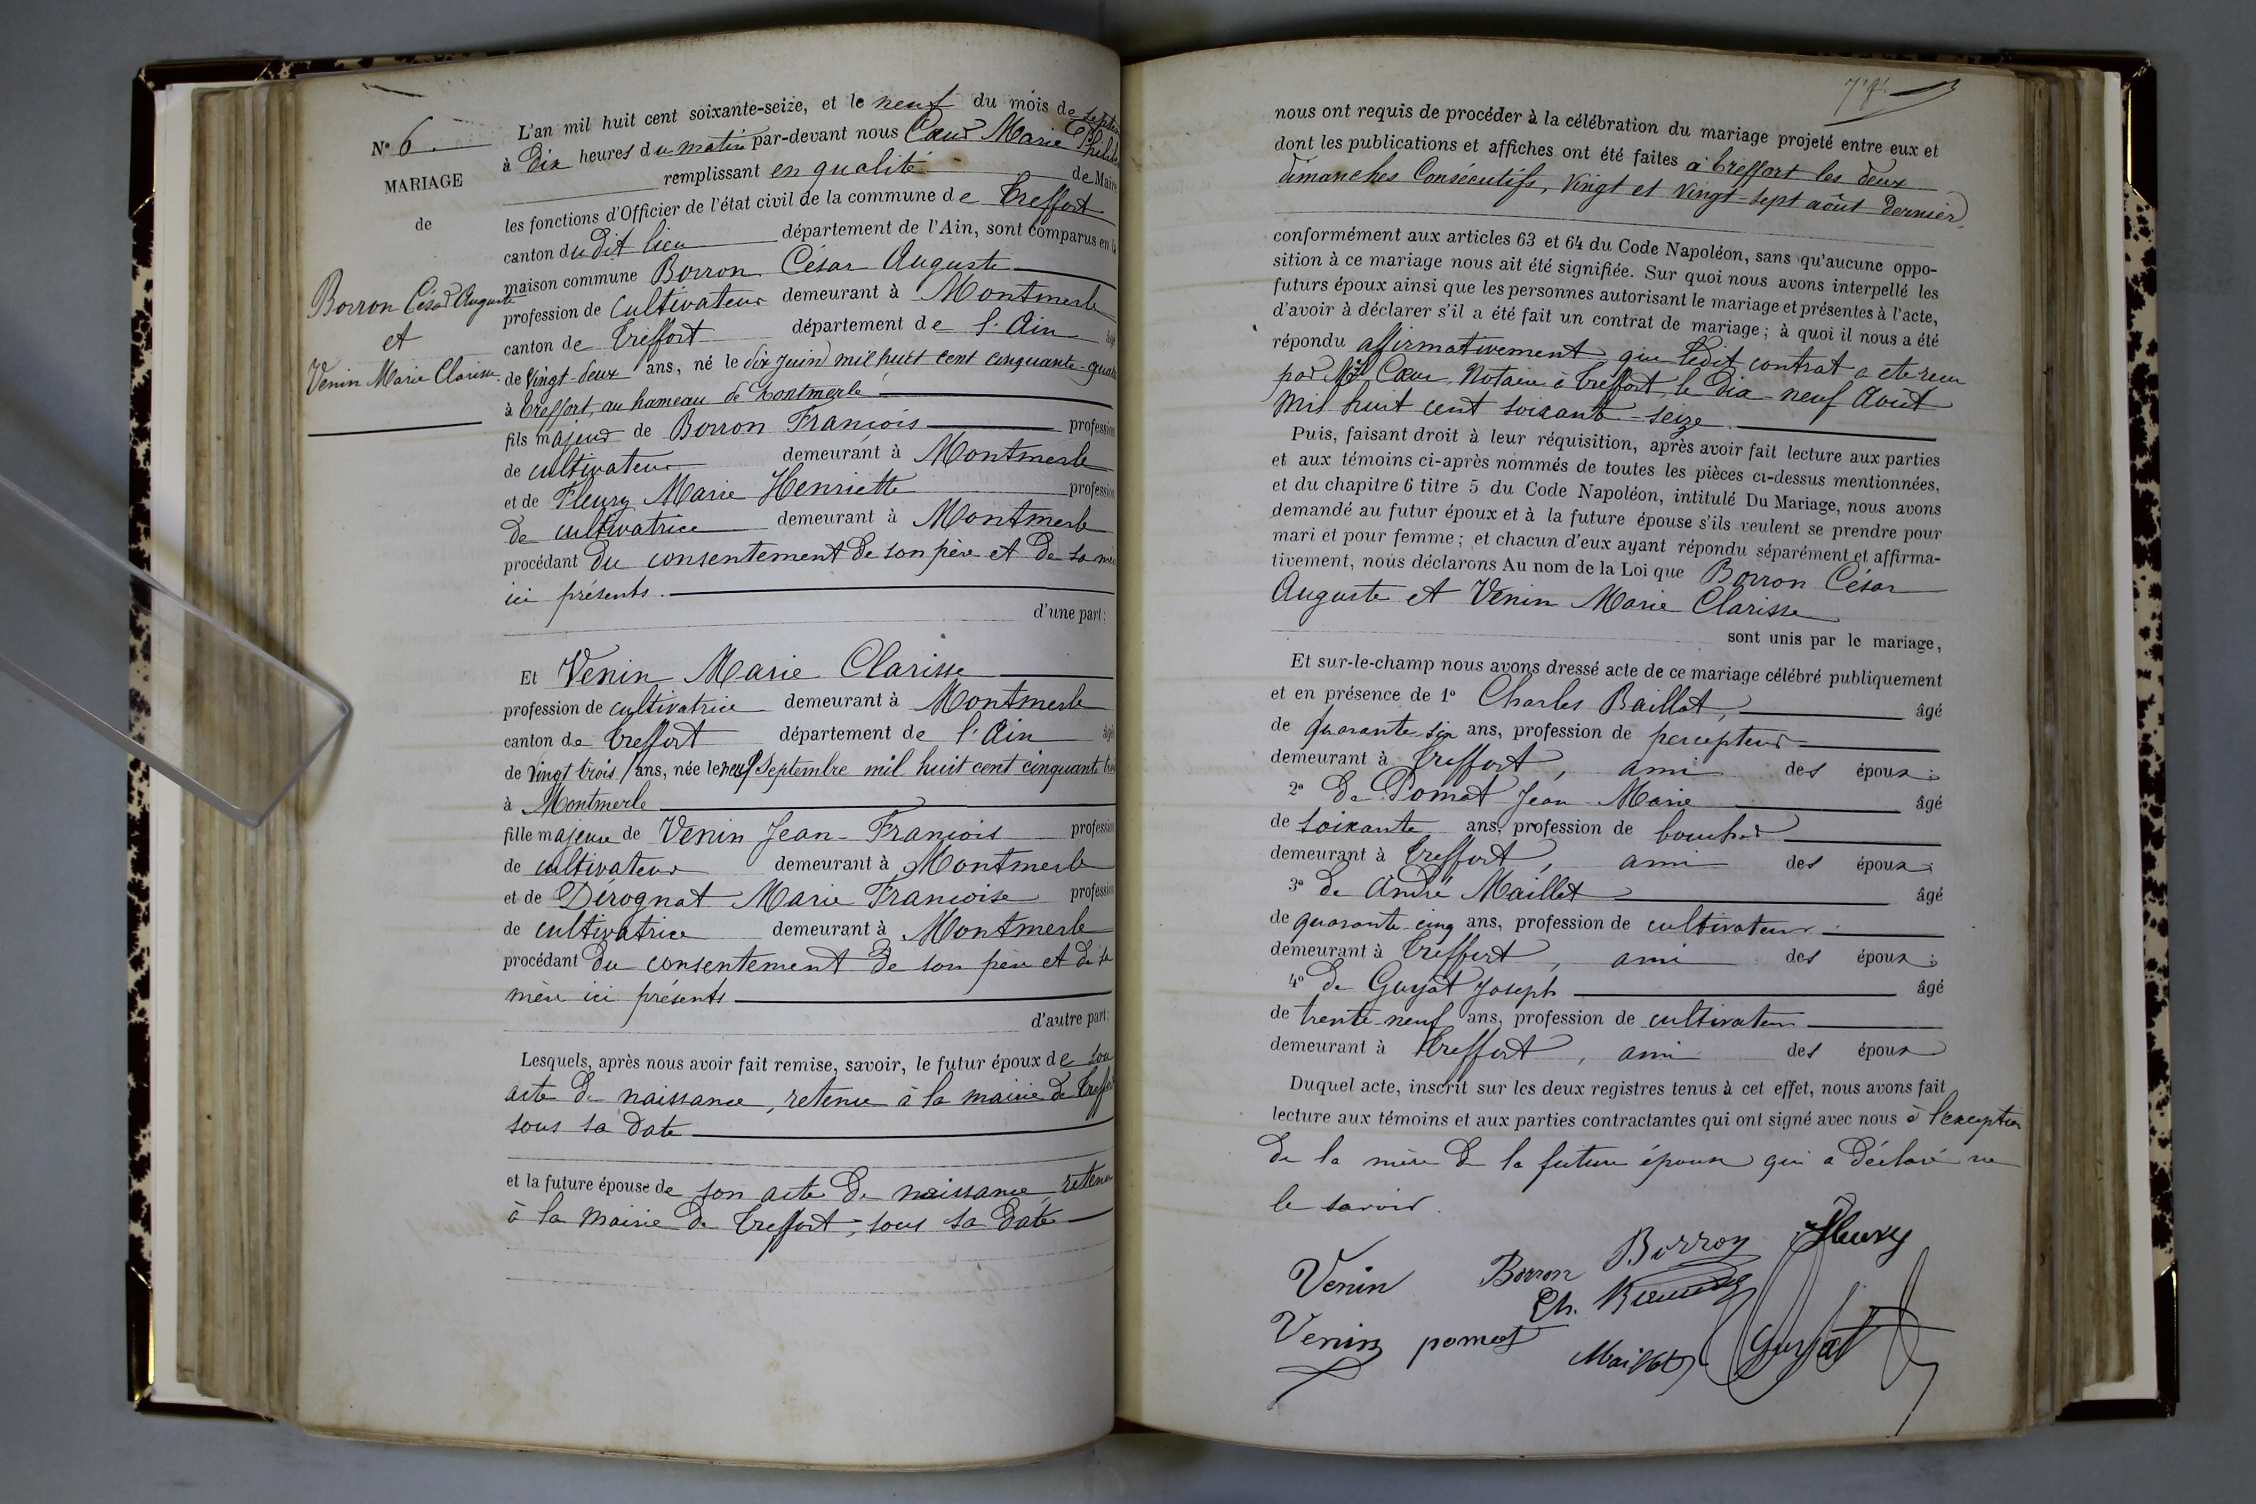 N° 6.
MARIAGE
de
Borron César Auguste
et
Venin Marie Clarisse.
L'an mil huit cent soixante-seize, et le neuf du mois de septem
à Dix heures du matin par-devant nous Cœur Marie Philib
remplissant en qualité de Maire
les fonctions d'Officier de l'état civil de la commune de Treffort
canton du dit lieu département de l'Ain, sont comparus en la
maison commune Borron César Auguste
profession de cultivateur demeurant à Montmerle
canton de Treffort département de l'Ain âgé
de vingt-deux ans, né le dix juin mil huit cent cinquante-quatre
à Treffort, au hameau de Montmerle
fils majeur de Borron François profession
de cultivateur demeurant à Montmerle
et de Fleury Marie Henriette profession
de cultivatrice demeurant à Montmerle
procédant du consentement de son père et de sa mère
ici présents.
d'une part:
Et Venin Marie Clarisse
profession de cultivatrice demeurant à Montmerle
canton de Treffort département de l'Ain âgé
de vingt trois ans, née le neuf Septembre mil huit cent cinquante trois
à Montmerle
fille majeure de Venin Jean-François profession
de cultivateur demeurant à Montmerle
et de Dérognat Marie Françoise profession
de cultivatrice demeurant à Montmerle
procédant du consentement de son père et de sa
mère ici présents
d'autre part:
Lesquels, après nous avoir fait remise, savoir, le futur époux de son
acte de naissance, retenu à la mairie de Treffort
sous sa date
et la future épouse de son acte de naissance, retenu
à la mairie de Treffort, sous sa date
nous ont requis de procéder à la célébration du mariage projeté entre eux et
dont les publications et affiches ont été faites à Treffort les deux
dimanches consécutifs, vingt et vingt-sept août dernier,
conformément aux articles 63 et 64 du Code Napoléon, sans qu'aucune oppo-
sition à ce mariage nous ait été signifiée. Sur quoi nous avons interpellé les
futurs époux ainsi que les personnes autorisant le mariage et présentes à l'acte,
d'avoir à déclarer s'il a été fait un contrat de mariage; à quoi il nous a été
répondu affirmativement que ledit contrat a été reçu
par Me Cœur, Notaire à Treffort, le dix-neuf Août
mil huit cent soixante-seize.
Puis, faisant droit à leur réquisition, après avoir fait lecture aux parties
et aux témoins ci-après nommés de toutes les pièces ci-dessus mentionnées,
et du chapitre 6 titre 5 du Code Napoléon, intitulé Du Mariage, nous avons
demandé au futur époux et à la future épouse s'ils veulent se prendre pour
mari et pour femme; et chacun d'eux ayant répondu séparément et affirma-
tivement, nous déclarons Au nom de la Loi que Borron César
Auguste et Venin Marie Clarisse
sont unis par le mariage,
Et sur-le-champ nous avons dressé acte de ce mariage célébré publiquement
et en présence de 1° Charles Baillat, âgé
de quarante-six ans, profession de percepteur
demeurant à Treffort, ami des époux;
2° de Pomat Jean-Marie âgé
de soixante ans, profession de boucher
demeurant à Treffort, ami des époux;
3° de André Maillet âgé
de quarante-cinq ans, profession de cultivateur
demeurant à Treffort, ami des époux;
4° de Guyat Joseph âgé
de trente-neuf ans, profession de cultivateur
demeurant à Treffort, ami des époux
Duquel acte, inscrit sur les deux registres tenus à cet effet, nous avons fait
lecture aux témoins et aux parties contractantes qui ont signé avec nous à l'exception
de la mère de la future épouse qui a déclaré ne
le savoir.
Venin Borron Borron Fleury
Ch.
Venin pomat Maillet Guyat